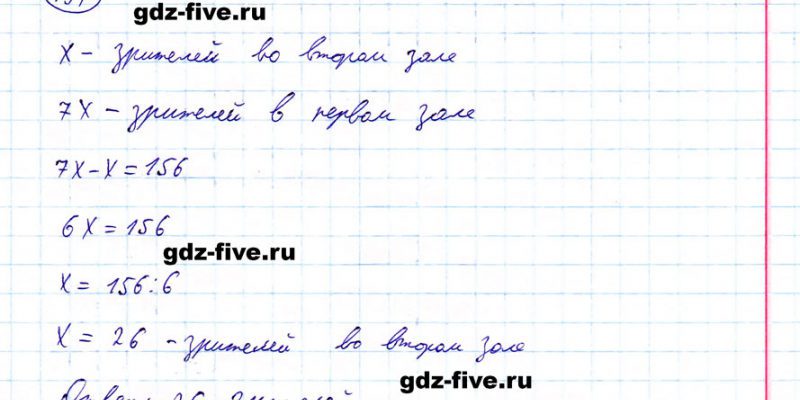 gdz-five.ru
x - зрителей во втором зале
7x - зрителей в первом зале
7x - x = 156
6x = 156
gdz-five.ru
x = 156:6
x = 26 - зрителей во втором зале
gdz-five.ru